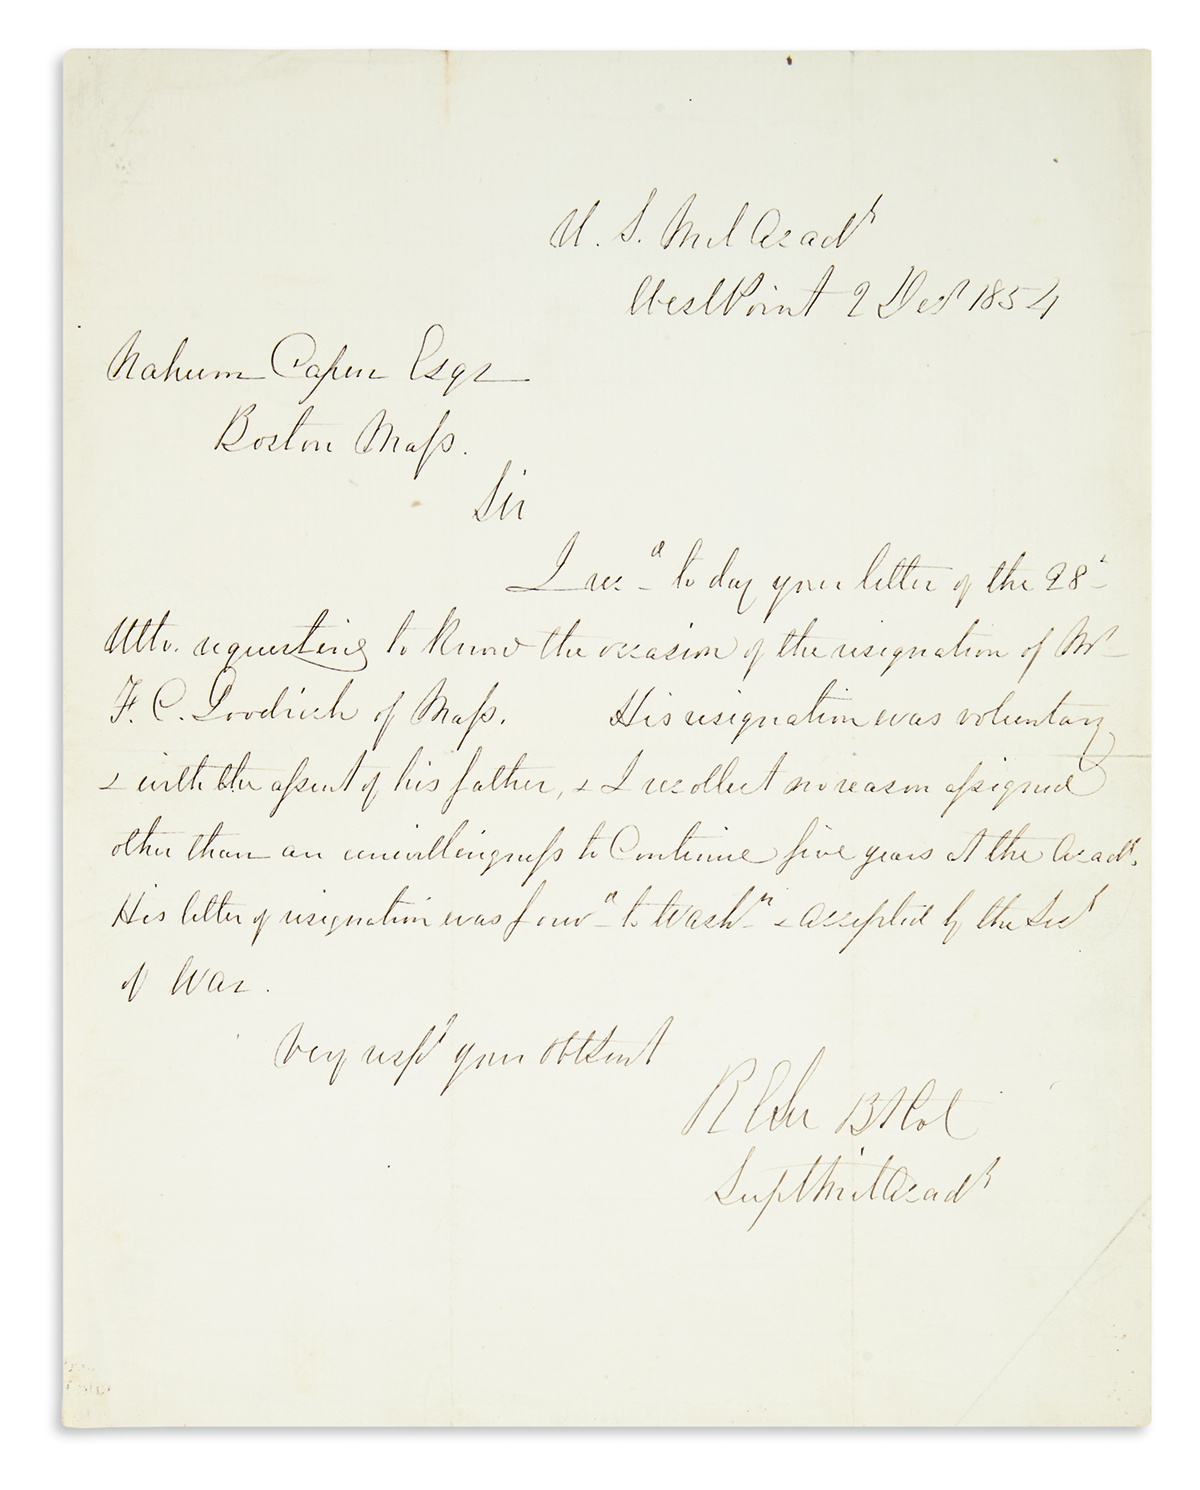 U. S. Mil Acady
West Point 2 Decr 1854
Nahum Capen Esqr
Boston Mass.
Sir
I recd to day your letter of the 28th
Ulto. requesting to know the occasion of the resignation of Mr
F. C. Goodrich of Mass. His resignation was voluntary
& with the assent of his father, & I recollect no reason assigned
other than an unwillingness to Continue five years at the Acady.
His letter of resignation was forwd to Washn & accepted by the Secy
of War.
Very respy your obt Servt
R E Lee Bt Col
Supt Mil Acady